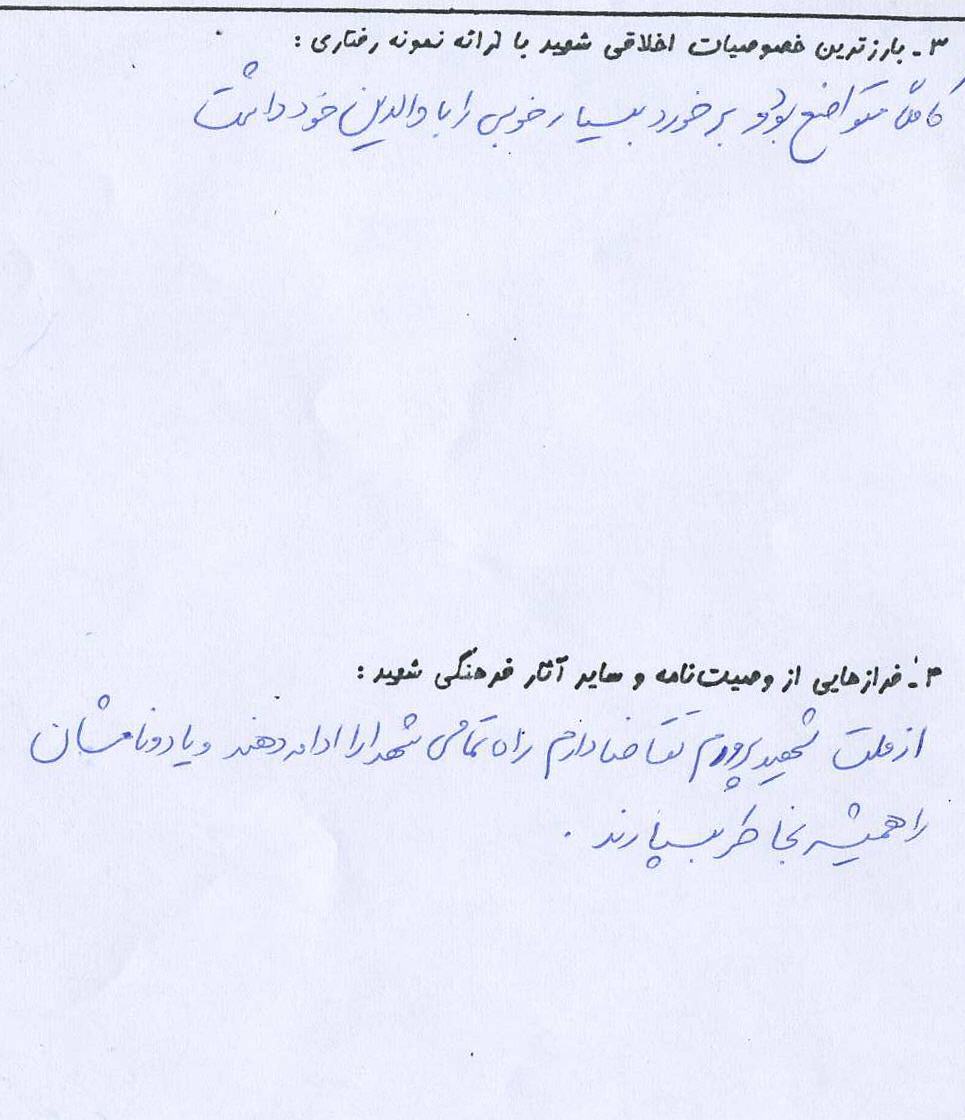 ۳ - بارزترین خصوصیات اخلاقی شهید با ارائه نمونه رفتاری :
کاملاً متواضع بود و برخورد بسیار خوبی را با والدین خود داشت
۴ - فرازهایی از وصیت‌نامه و سایر آثار فرهنگی شهید :
از ملت شهید پرورم تقاضا دارم راه تمامی شهدا را ادامه دهند و یاد و نامشان
را همیشه بخاطر بسپارند .